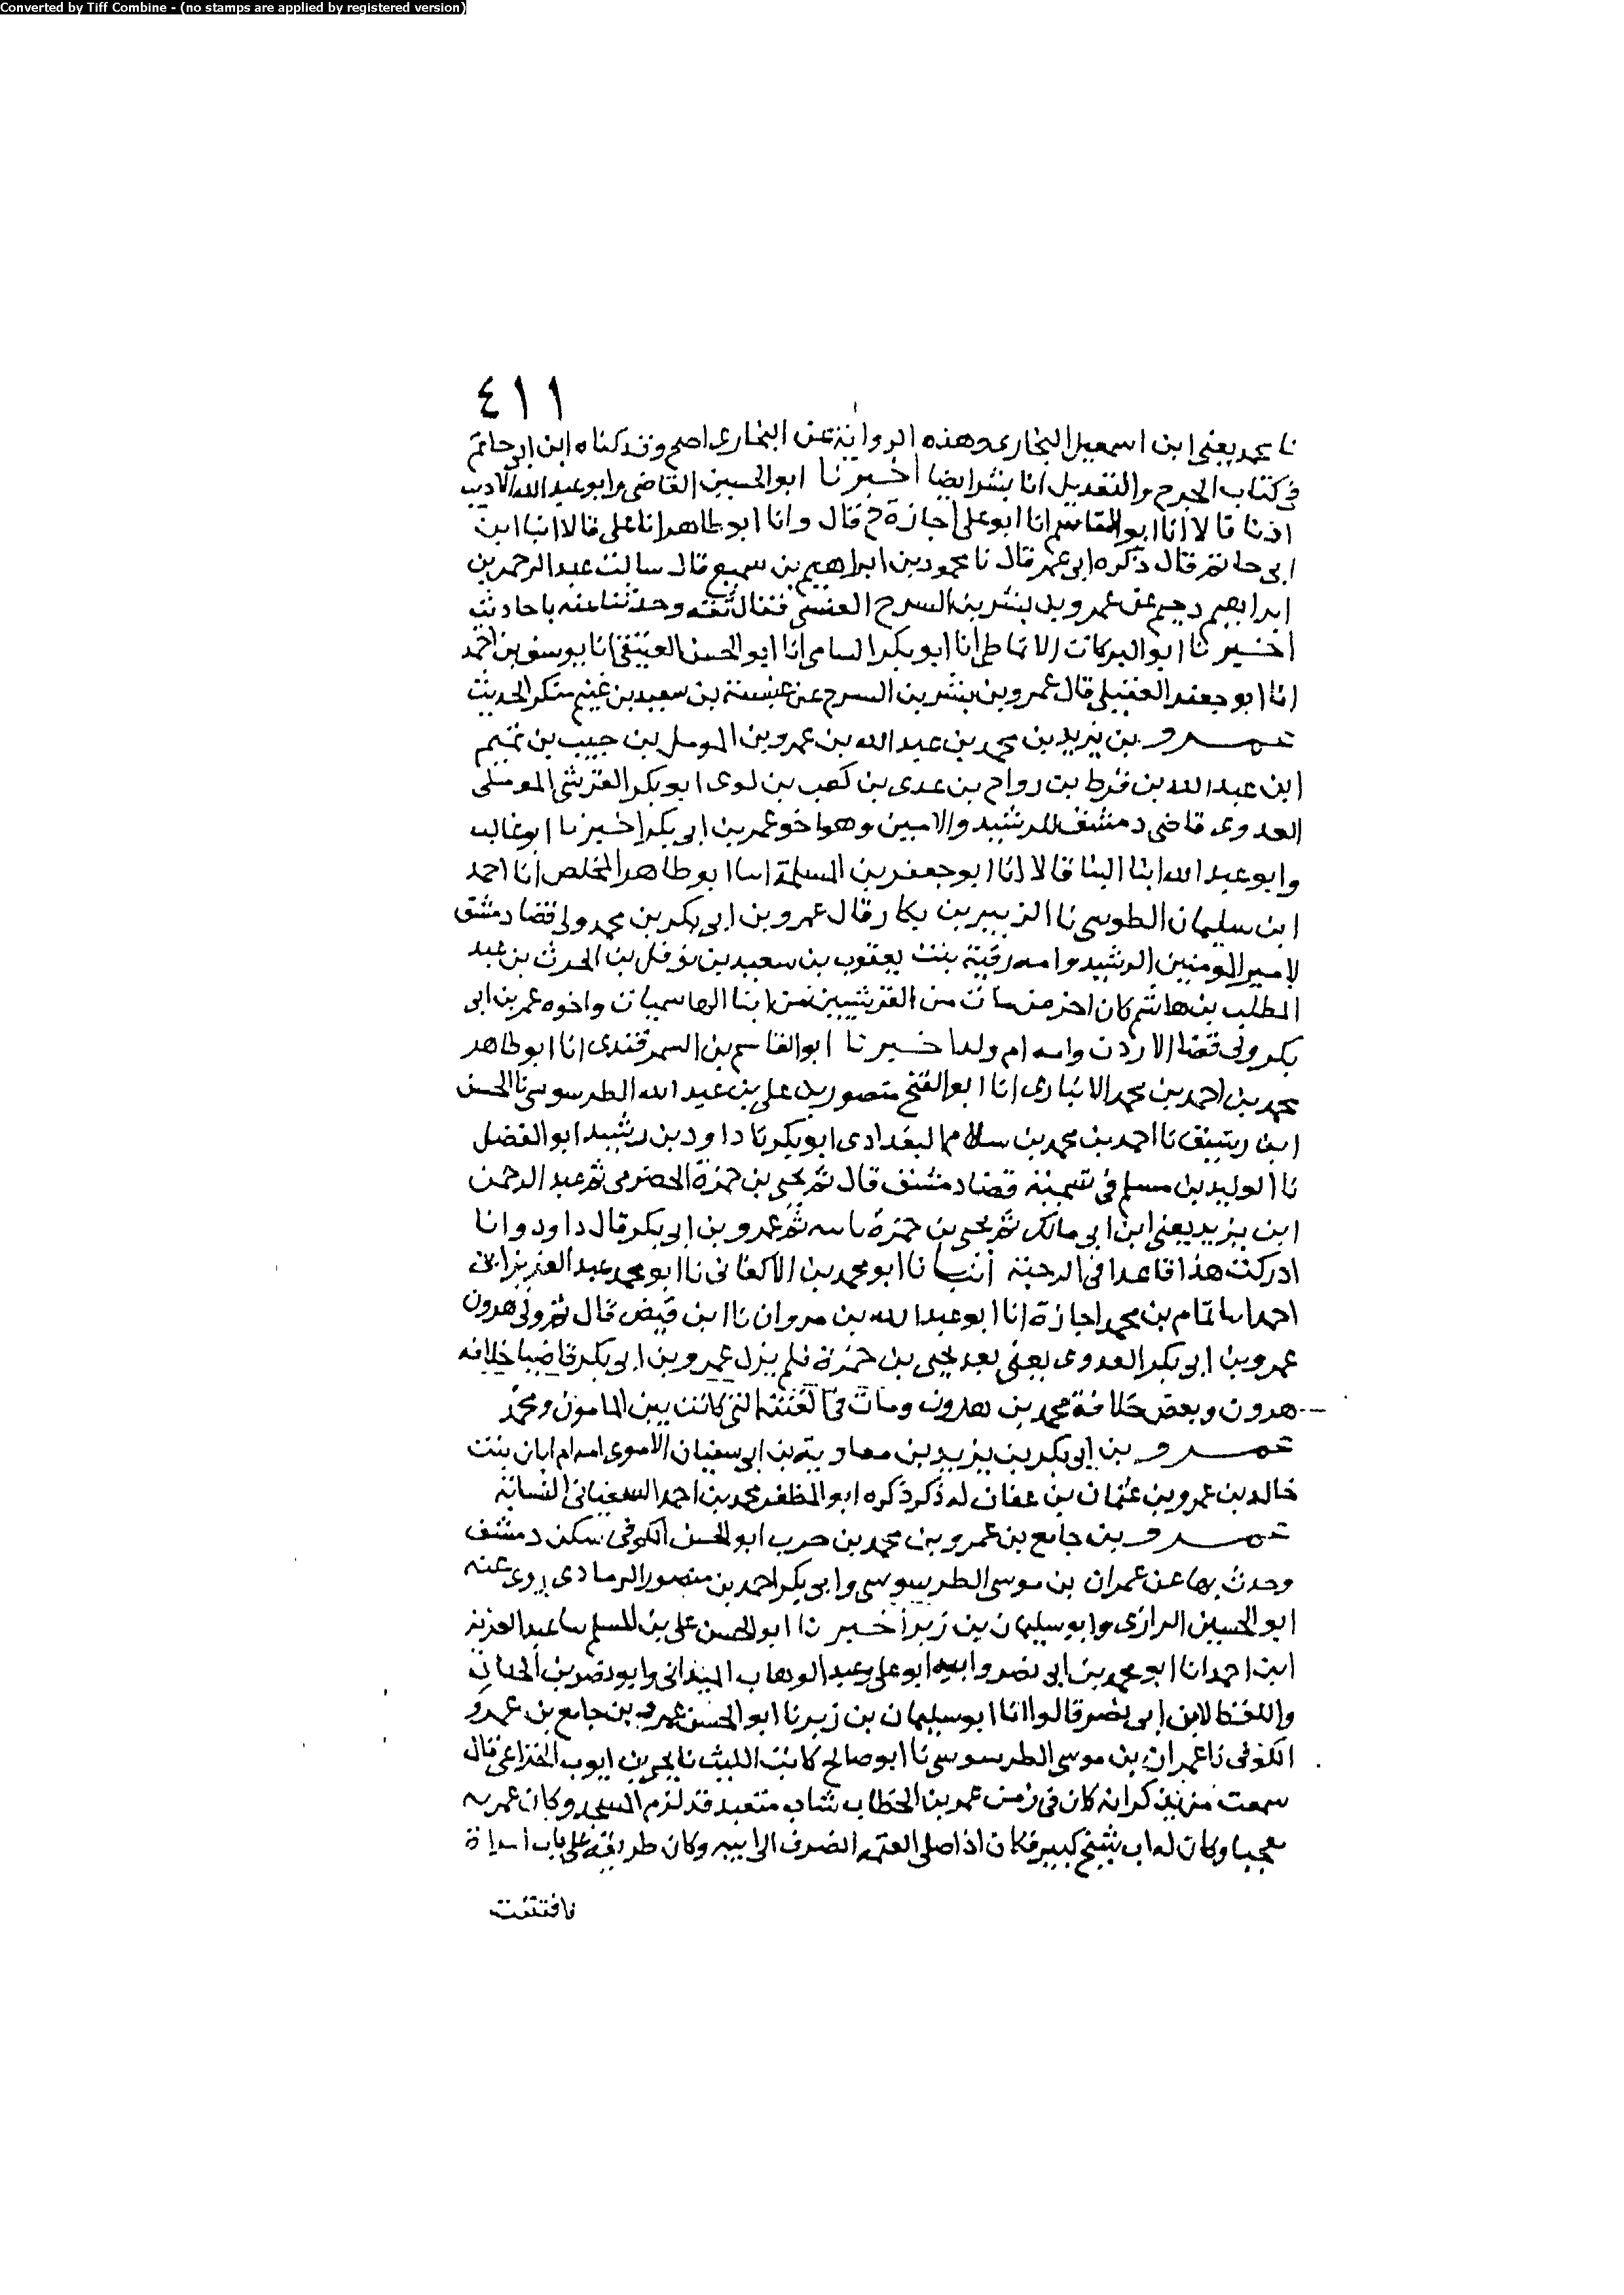 Converted by Tiff Combine - (no stamps are applied by registered version)
٤١١
نا محمد يعنى ابن اسمعيل البخارى وهذه الرواية عن البخارى اصح وقد كناه ابن ابى حاتم
فى كتاب الجرح والتعديل انا بشر ايضا اخبرنا ابو الحسين القاضى وابو عبد الله الاديب
اذنا قالا انا ابو القاسم انا ابو على اجازة ح قال وانا ابو طاهر انا على قالا انا ابن
ابى حاتم قال ذكره ابى عنه قال نا محمود بن ابراهيم بن سميع قال سالت عبد الرحمن بن
ابراهيم دحيم عن عمرو بن بشر بن السرح العنسى فقال ثقة وحدثنا عنه باحاديث
اخبرنا ابو البركات الانماطى انا ابو بكر السامى انا ابو الحسن العتيقى انا يوسف بن احمد
انا ابو جعفر العقيلى قال عمرو بن بشر بن السرح عن عنبسة بن سعيد بن غنيم منكر الحديث
عمرو بن يزيد بن محمد بن عبد الله بن عمرو بن المومل بن حبيب بن تميم
ابن عبد الله بن قرط بن رواح بن عدى بن كعب بن لوى ابو بكر القرشى الموصلى
العدوى قاضى دمشق للرشيد والامين وهو اخو عمر بن ابى بكر اخبرنا ابو غالب
وابو عبد الله ابنا البنا قالا انا ابو جعفر بن المسلمة انا ابو طاهر المخلص انا احمد
ابن سليمان الطوسى نا الزبير بن بكار قال عمرو بن ابى بكر بن محمد ولى قضا دمشق
لامير المومنين الرشيد وامه رقية بنت يعقوب بن سعيد بن نوفل بن الحرث بن عبد
المطلب بن هاشم كان اخر من مات من القرشيين من ابنا الهاشميات واخوه عمر بن ابى
بكر ولى قضا الاردن وامه ام ولد اخبرنا ابو القاسم بن السمرقندى انا ابو طاهر
محمد بن احمد بن محمد الانبارى انا ابو الفتح منصور بن على بن عبد الله الطرسوسى نا الحسن
ابن رشيق نا احمد بن محمد بن سلام البغدادى ابو بكر نا داود بن رشيد ابو الفضل
نا الوليد بن مسلم فى تسمية قضاة دمشق قال ثم يحيى بن حمزة الحضرمى ثم عبد الرحمن
ابن يزيد يعنى ابن ابى مالك ثم يحيى بن حمزة ثم عمرو بن ابى بكر قال داود وانا
ادركت هذا قاعدا فى الرحبة انبانا ابو محمد بن الاكفانى نا ابو محمد عبد العزيز ابن
احمد انا تمام بن محمد اجازة انا ابو عبد الله بن مروان نا ابن فيض قال ثم ولى هرون
عمرو بن ابى بكر العدوى يعنى بعد يحيى بن حمزة فلم يزل عمرو بن ابى بكر قاضيا خلافة
هرون وبعض خلافة محمد بن هرون ومات فى الفتنة التى كانت بين المامون ومحمد
عمرو بن ابى بكر بن يزيد بن معاوية بن ابى سفيان الاموى امه ام ابان بنت
خالد بن عمرو بن عثمان بن عفان له ذكر ذكره ابو المظفر محمد بن احمد النسابة
عمرو بن جامع بن عمرو بن محمد بن حرب ابو الحسن الكوفى سكن دمشق
وحدث بها عن عمران بن موسى الطرسوسى وابى بكر احمد بن منصور الرمادى روى عنه
ابو الحسين الرازى وابو سليمان بن زبر اخبرنا ابو الحسن على بن المسلم نا عبد العزيز
ابن احمد انا ابو محمد بن ابى نصر وابنه ابو على وعبد الوهاب الميدانى وابو نصر بن الجبان
واللفظ لابن ابى نصر قالوا انا ابو سليمان بن زبر نا ابو الحسن عمرو بن جامع بن عمرو
الكوفى نا عمران بن موسى الطرسوسى نا ابو صالح كاتب الليث نا يحيى بن ايوب الخزاعى قال
سمعت من يذكر انه كان فى زمن عمر بن الخطاب شاب متعبد قد لزم المسجد وكان عمر به
معجبا وكان له اب شيخ كبير فكان اذا صلى العتمة انصرف الى ابيه وكان طريقه على باب امراة
فافتتنت